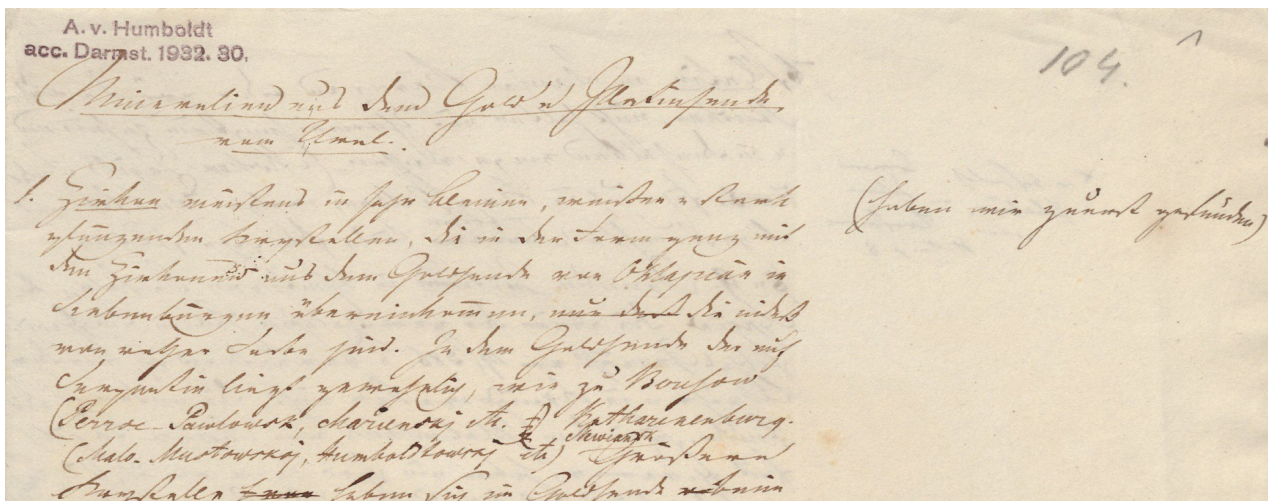 A. v. Humboldt
acc. Darmst. 1932. 30.
104.
Mineralien aus dem Gold u Platinsande
vom Ural.
1. Zirkon meistens in sehr kleinen, weißen stark
glänzenden Krystallen, die in der Form ganz mit
(haben wir zuerst gefunden)
den Zirkonen aus dem Goldsande von Ohlapian in
Siebenbürgen übereinkommen, nur daß die nicht
von rother Farbe sind. In dem Goldsande der auf
Serpentin liegt gewöhnlich, wie zu
(Perroe-Pawlowsk, Marienskoj &c.) Katharinenburg.
(Malo-Mostowskoj, Humboldtowskoj &c) Newiansk Größere
Krystalle haben sich im Goldsande beim